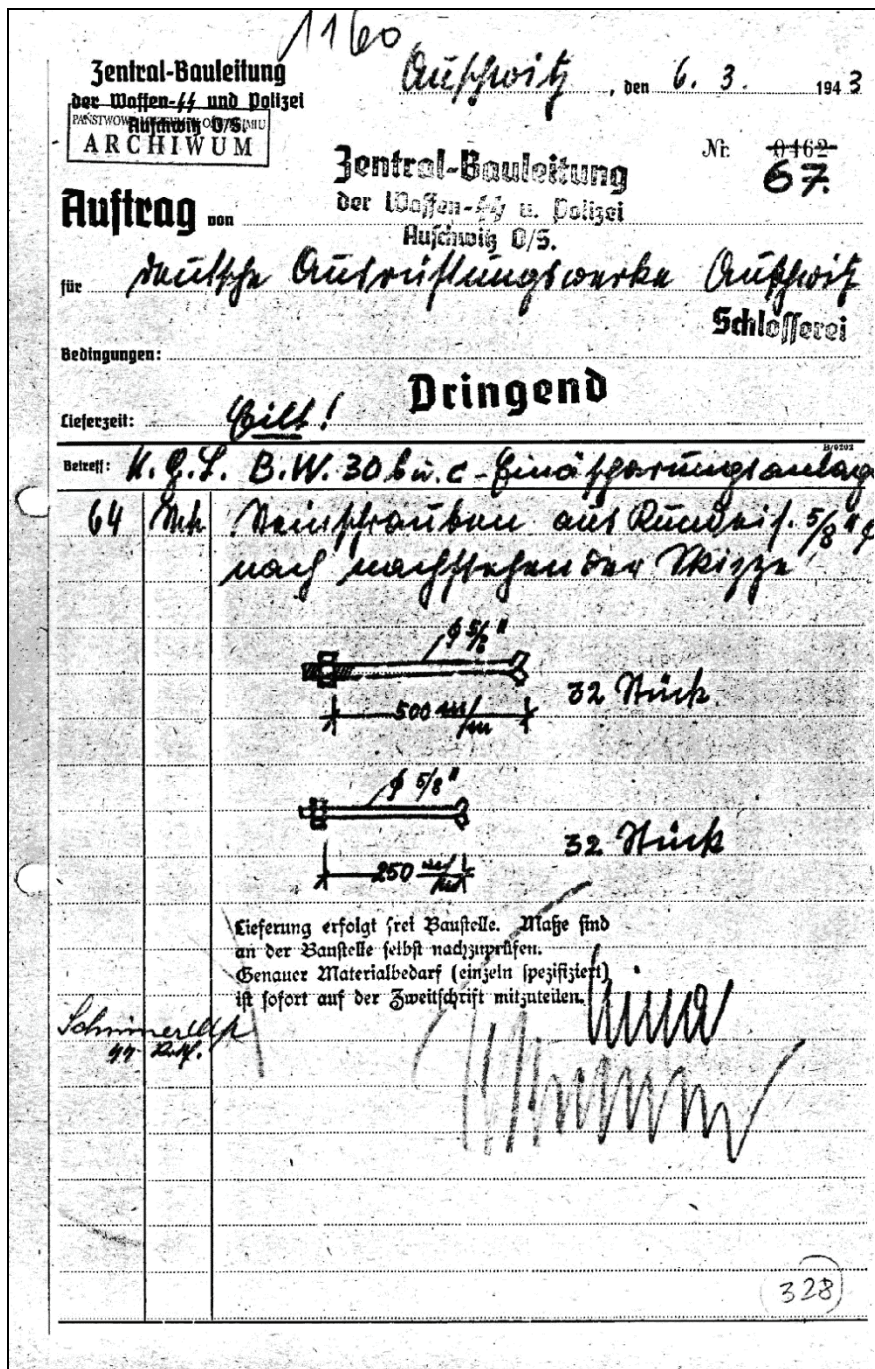 1160
Zentral-Bauleitung
der Waffen-ϟϟ und Polizei
Auschwitz O/S.
ARCHIWUM
Auschwitz, den 6. 3. 1943
Nr. 0462
67.
Zentral-Bauleitung
der Waffen-ϟϟ u. Polizei
Auschwitz O/S.
Auftrag von
für Deutsche Ausrüstungswerke Auschwitz
Schlosserei
Bedingungen:
Dringend
Lieferzeit: Eilt!
Betreff: K.G.L. B.W. 30 b u. c - Einäscherungsanlage
64 Stck. Steinschrauben aus Rundeis. 5/8" φ
nach nachstehender Skizze
φ 5/8"
500 m/m
32 Stück
φ 5/8"
250 m/m
32 Stück
Lieferung erfolgt frei Baustelle. Maße sind
an der Baustelle selbst nachzuprüfen.
Genauer Materialbedarf (einzeln spezifiziert)
ist sofort auf der Zweitschrift mitzuteilen.
328